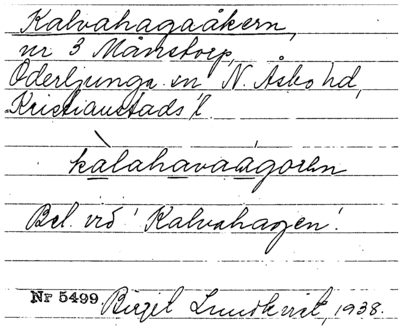 Kalvahagaåkern,
nr 3 Månstorp,
Oderljunga sn N. Åsbo hd,
Kristianstads l.
kàlahavaágoren
Bel. vid 'Kalvahagen'.
Nr 5499. Birgit Lundkvist, 1938.